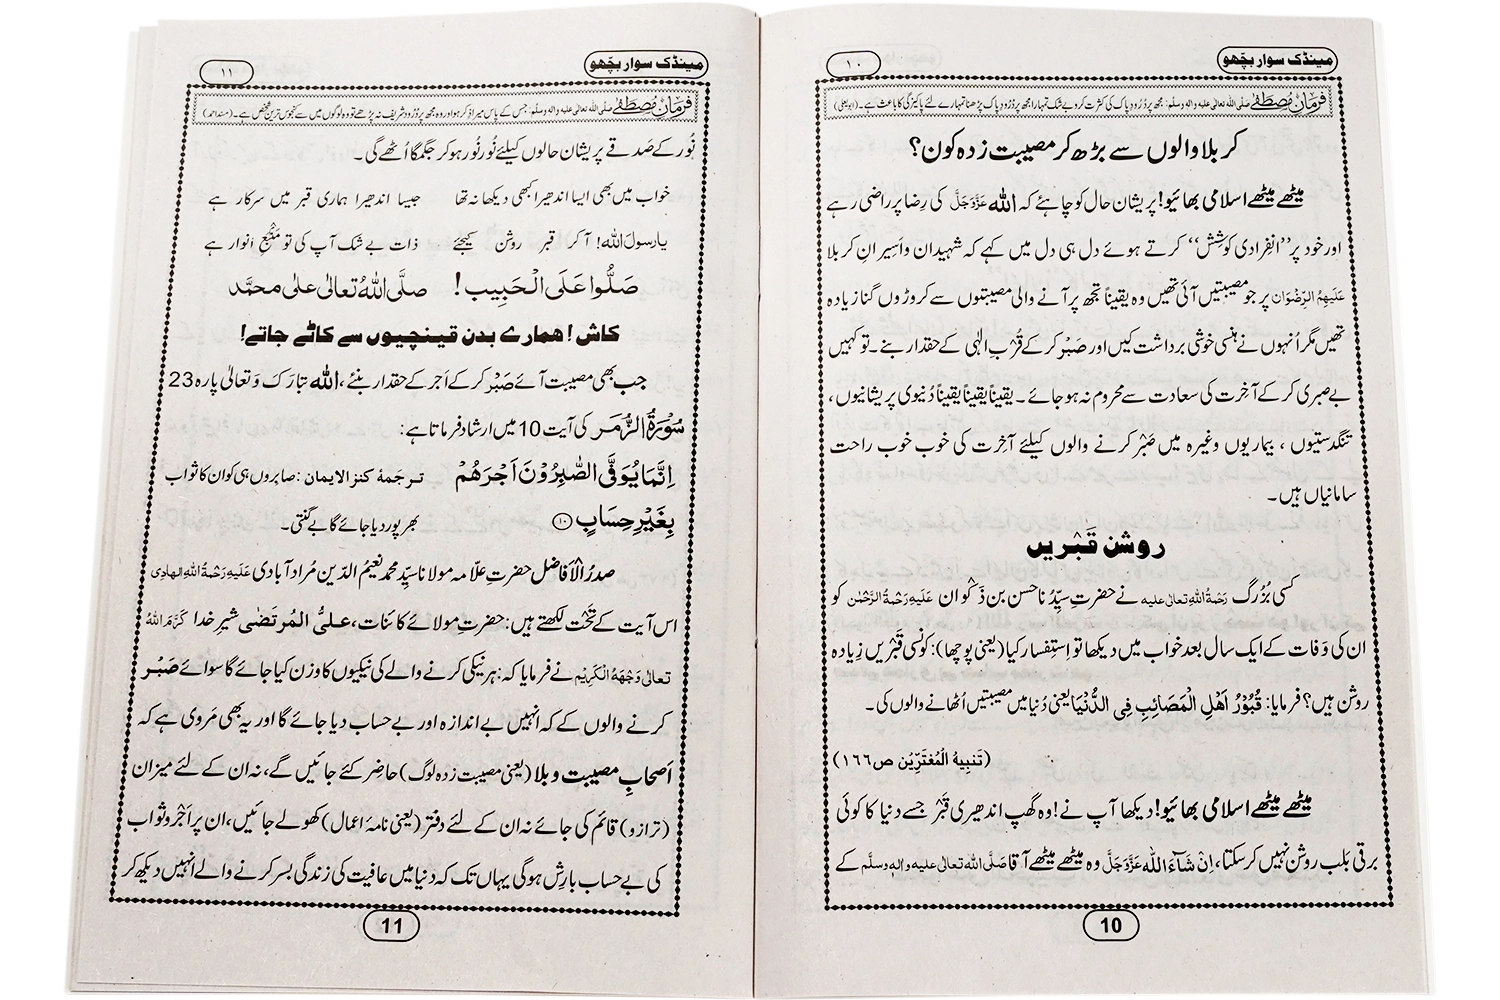 مینڈک سوار بچھو
۱۰
فرمانِ مصطفےٰ صلی اللہ تعالیٰ علیہ والہ وسلم: مجھ پر دُرُودِ پاک کی کثرت کرو بے شک تمہارا مجھ پر دُرُودِ پاک پڑھنا تمہارے لئے پاکیزگی کا باعث ہے۔ (ابویعلیٰ)
کربلا والوں سے بڑھ کر مصیبت زدہ کون؟
میٹھے میٹھے اسلامی بھائیو! پریشان حال کو چاہئے کہ اللہ عَزَّوَجَلَّ کی رِضا پر راضی رہے
اور خود پر ’’انفرادی کوشِش‘‘ کرتے ہوئے دل ہی دل میں کہے کہ شہیدان و اَسیرانِ کربلا
عَلَیْہِمُ الرِّضْوَان پر جو مصیبتیں آئی تھیں وہ یقیناً تجھ پر آنے والی مصیبتوں سے کروڑوں گنا زیادہ
تھیں مگر اُنہوں نے ہنسی خوشی برداشت کیں اور صَبْر کر کے قُرْبِ الٰہی کے حقدار بنے۔ تو کہیں
بے صبری کر کے آخِرت کی سعادت سے محروم نہ ہو جائے۔ یقیناً یقیناً یقیناً دُنیوی پریشانیوں،
تنگدستیوں، بیماریوں وغیرہ میں صَبْر کرنے والوں کیلئے آخِرت کی خوب خوب راحت
سامانیاں ہیں۔
روشن قَبْریں
کسی بُزُرگ رَحْمَۃُ اللہِ تعالیٰ علیہ نے حضرتِ سیِّدُنا حسن بن ذَکْوان عَلَیْہِ رَحْمَۃُ الرَّحْمٰن کو
ان کی وَفات کے ایک سال بعد خواب میں دیکھا تو اِستِفسار کیا (یعنی پوچھا): کونسی قَبْریں زِیادہ
روشن ہیں؟ فرمایا: قُبُوْرُ اَھْلِ الْمَصَائِبِ فِی الدُّنْیَا یعنی دُنیا میں مصیبتیں اُٹھانے والوں کی۔
(تَنبِیہُ الْمُغْتَرِّیْن ص۱۶۶)
میٹھے میٹھے اسلامی بھائیو! دیکھا آپ نے! وہ گھپ اندھیری قَبْر جسے دنیا کا کوئی
برقی بَلب روشن نہیں کرسکتا، اِنْ شَآءَ اللہ عَزَّوَجَلَّ وہ میٹھے میٹھے آقا صَلَّی اللہ تعالیٰ علیہ والہٖ وسلَّم کے
10
مینڈک سوار بچھو
۱۱
فرمانِ مصطفےٰ صلی اللہ تعالیٰ علیہ والہ وسلم: جس کے پاس میرا ذکر ہوا اور وہ مجھ پر دُرُود شریف نہ پڑھے تو وہ لوگوں میں سے کنجوس ترین شخص ہے۔ (مسند احمد)
نُور کے صَدقے پریشان حالوں کیلئے نُور نُور ہو کر جگمگا اُٹھے گی۔
خواب میں بھی ایسا اندھیرا کبھی دیکھا نہ تھا جیسا اندھیرا ہماری قبر میں سرکار ہے
یا رسولَ اللہ! آ کر قبر روشن کیجئے ذات بے شک آپ کی تو مَنْبَعِ انوار ہے
صَلُّوا عَلَی الْحَبِیب! صلَّی اللہُ تعالٰی علٰی محمَّد
کاش! ہمارے بدن قینچیوں سے کاٹے جاتے!
جب بھی مصیبت آئے صَبْر کر کے اَجر کے حقدار بنئے، اللہ تَبارَکَ وَتعالیٰ پارہ 23
سُوْرَۃُ الزُّمَر کی آیت 10 میں ارشاد فرماتا ہے:
اِنَّمَا یُوَفَّی الصّٰبِرُوْنَ اَجْرَهُمْ ترجَمۂ کنز الایمان: صابروں ہی کو ان کا ثواب
بِغَیْرِ حِسَابٍ ۝۱۰ بھرپور دیا جائے گا بے گنتی۔
صدرُ الْاَفاضل حضرتِ علّامہ مولانا سیِّد محمد نعیمُ الدّین مُراد آبادی عَلَیْہِ رَحْمَۃُ اللہِ الھادِی
اس آیت کے تَحْت لکھتے ہیں: حضرتِ مولائے کائنات، علیُّ المُرتَضٰی شیرِ خدا کَرَّمَ اللہُ
تعالٰی وَجْھَہُ الْکَرِیْم نے فرمایا کہ: ہر نیکی کرنے والے کی نیکیوں کا وزن کیا جائے گا سوائے صَبْر
کرنے والوں کے کہ انہیں بے اندازہ اور بے حساب دیا جائے گا اور یہ بھی مَروی ہے کہ
اَصحابِ مصیبت و بلا (یعنی مصیبت زدہ لوگ) حاضِر کئے جائیں گے، نہ ان کے لئے میزان
(ترازو) قائم کی جائے نہ ان کے لئے دفتر (یعنی نامۂ اعمال) کھولے جائیں، ان پر اَجْر و ثواب
کی بے حساب بارِش ہوگی یہاں تک کہ دنیا میں عافیت کی زندگی بسر کرنے والے انہیں دیکھ کر
11